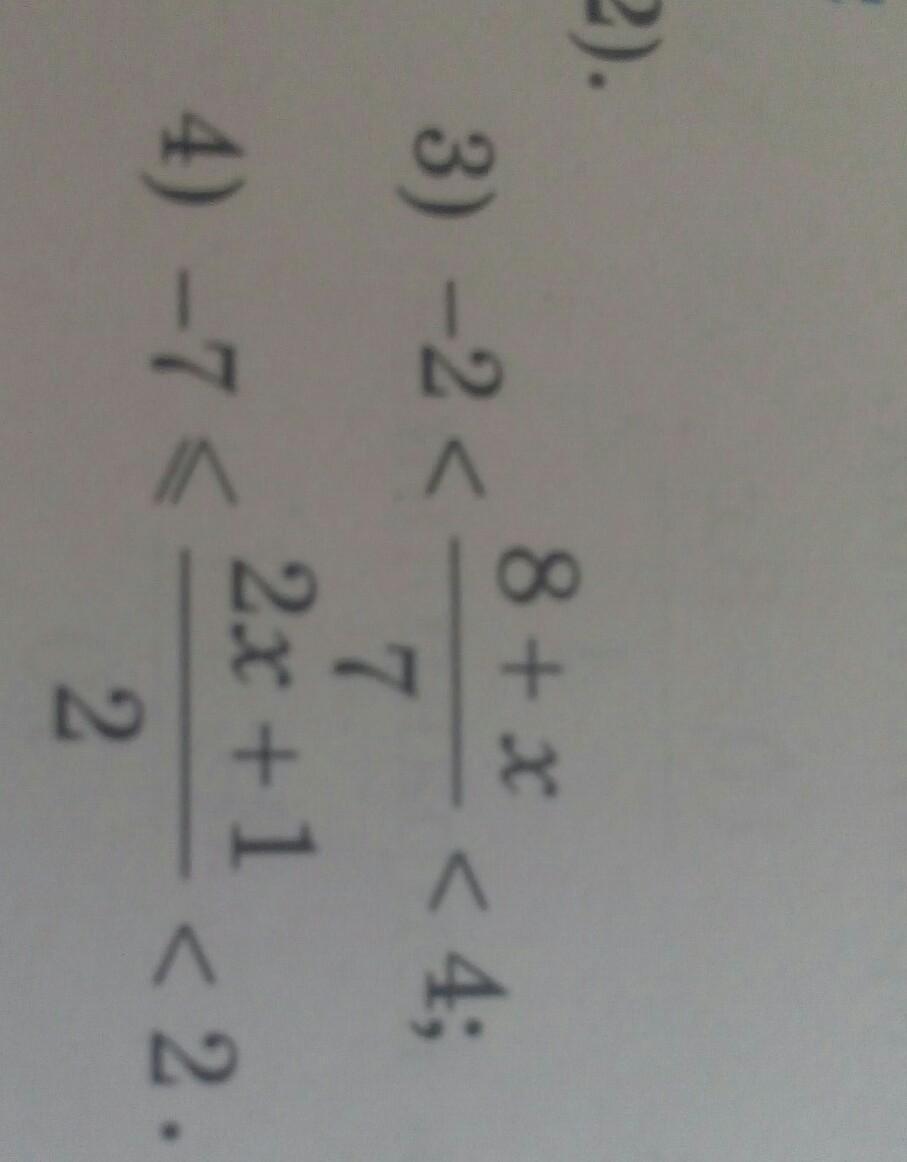 2).
3) −2 < (8 + x)/7 < 4;
4) −7 ⩽ (2x + 1)/2 < 2.